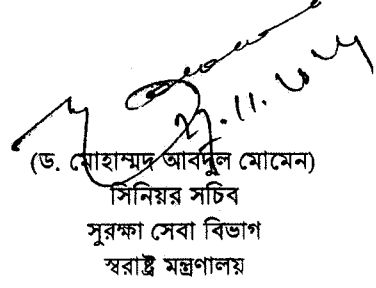 (ড. মোহাম্মদ আবদুল মোমেন)
সিনিয়র সচিব
সুরক্ষা সেবা বিভাগ
স্বরাষ্ট্র মন্ত্রণালয়